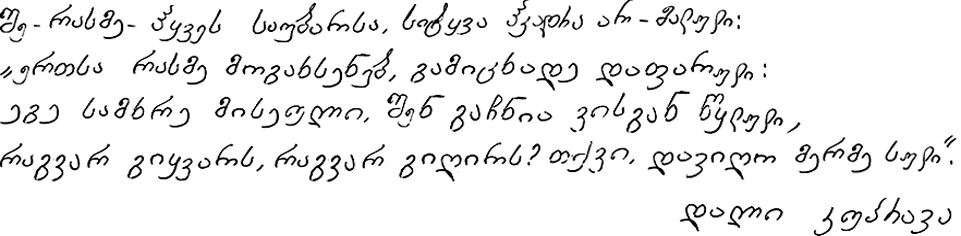 შე-რასმე-ჰყვეს საუბარსა, სიტყვა ჰკადრა არ-მალული:
„ერთსა რასმე მოგახსენებ, გამიცხადე დაფარული:
ეგე სამხრე მისეული, შენ გაჩნია ვისგან წყლული,
რაგვარ გიყვარს, რაგვარ გიღირს? თქვი, დავიღო მერმე სული“.
დალი კუპრავა